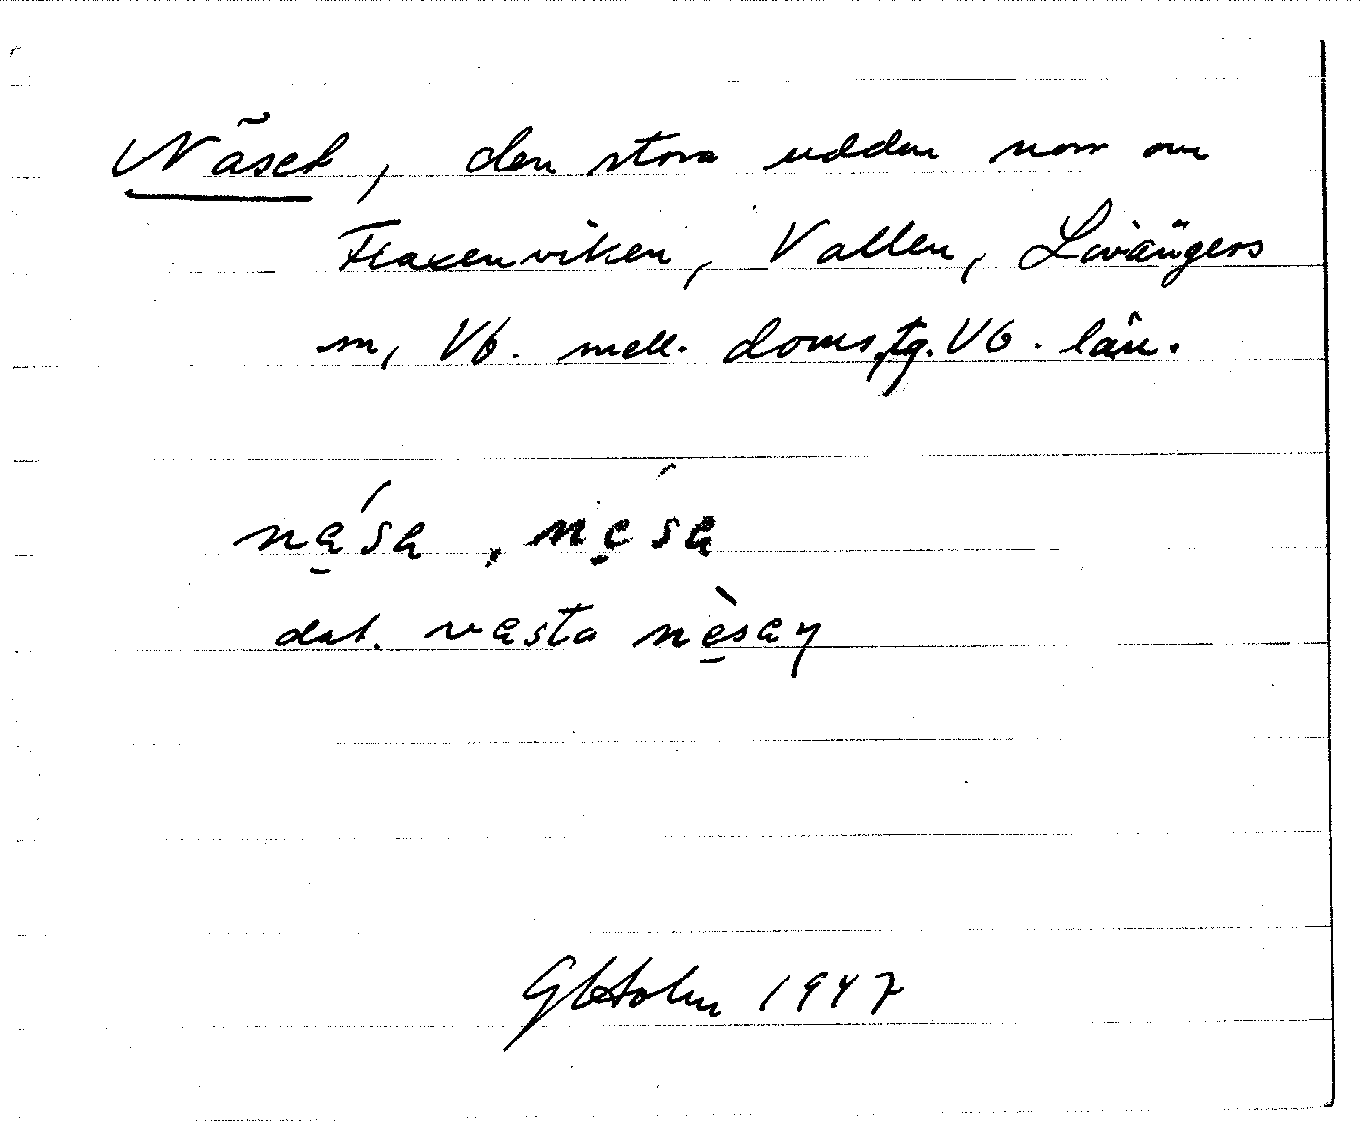 Näset, den stora udden norr om
Flaxenviken, Vallen, Lövångers
sn, Vb. mell. doms. tg. Vb. län.
nä́sa, nę́sa
dat. västa nę̀sąŋ
GHolm 1947